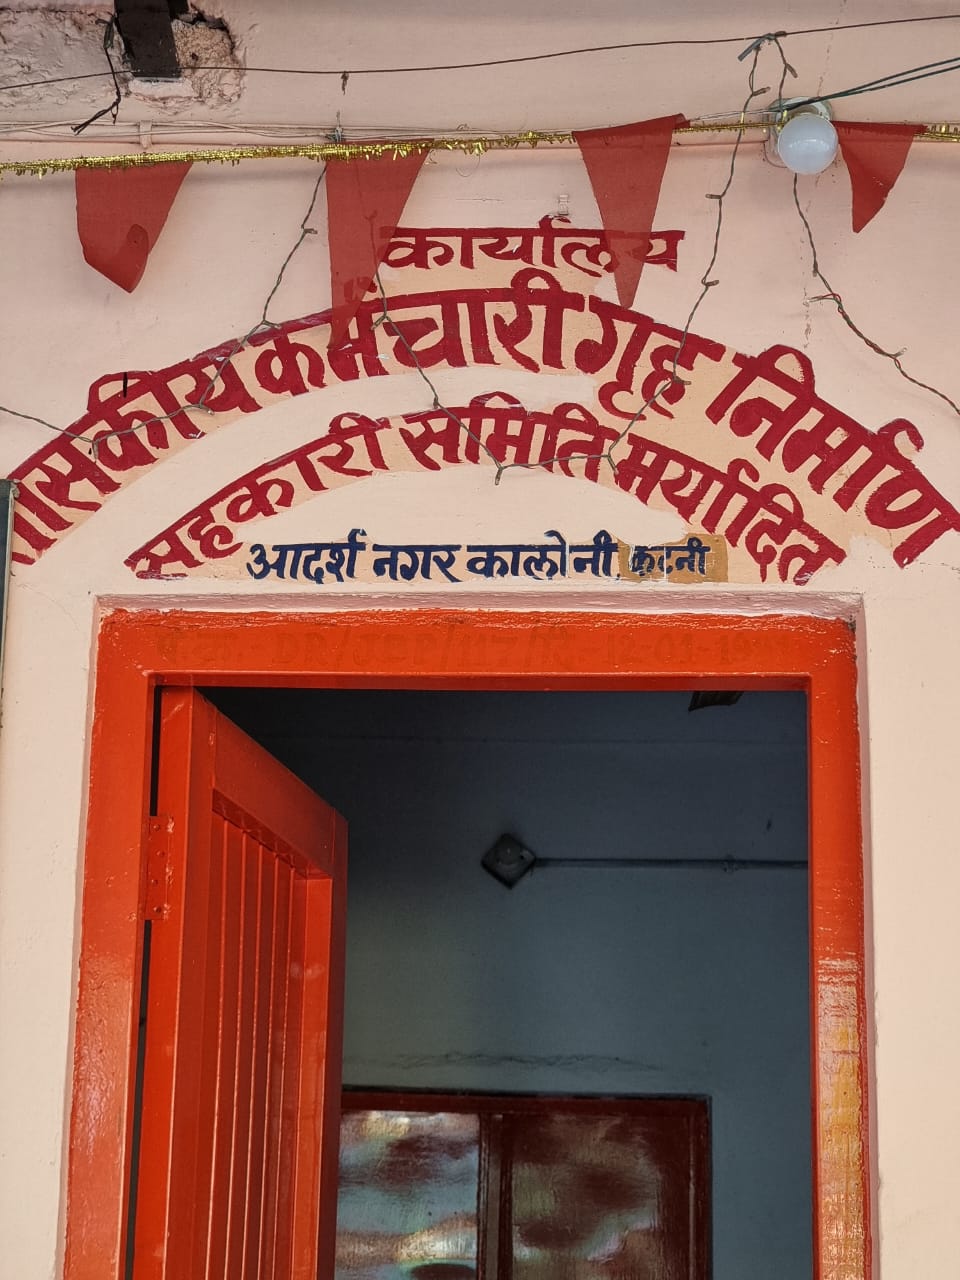 कार्यालय
शासकीय कर्मचारी गृह निर्माण
सहकारी समिति मर्यादित
आदर्श नगर कालोनी, कटनी
DR/JBP/117/ 12-01-19